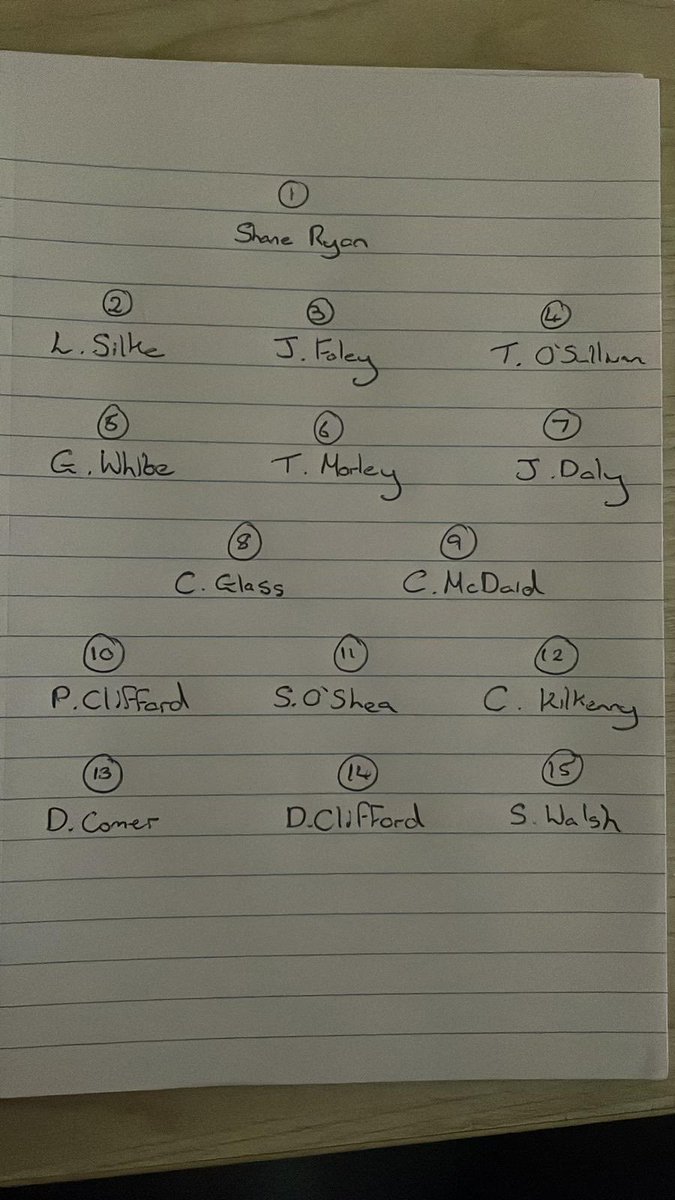 1
Shane Ryan
2 3 4
L. Silke J. Foley T. O'Sullivan
5 6 7
G. White T. Morley J. Daly
8 9
C. Glass C. McDaid
10 11 12
P. Clifford S. O'Shea C. Kilkenny
13 14 15
D. Comer D. Clifford S. Walsh